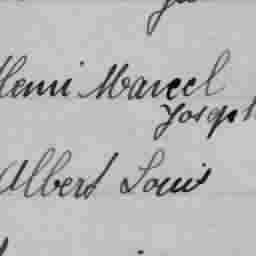 Henri Marcel
Joseph
Albert Louis